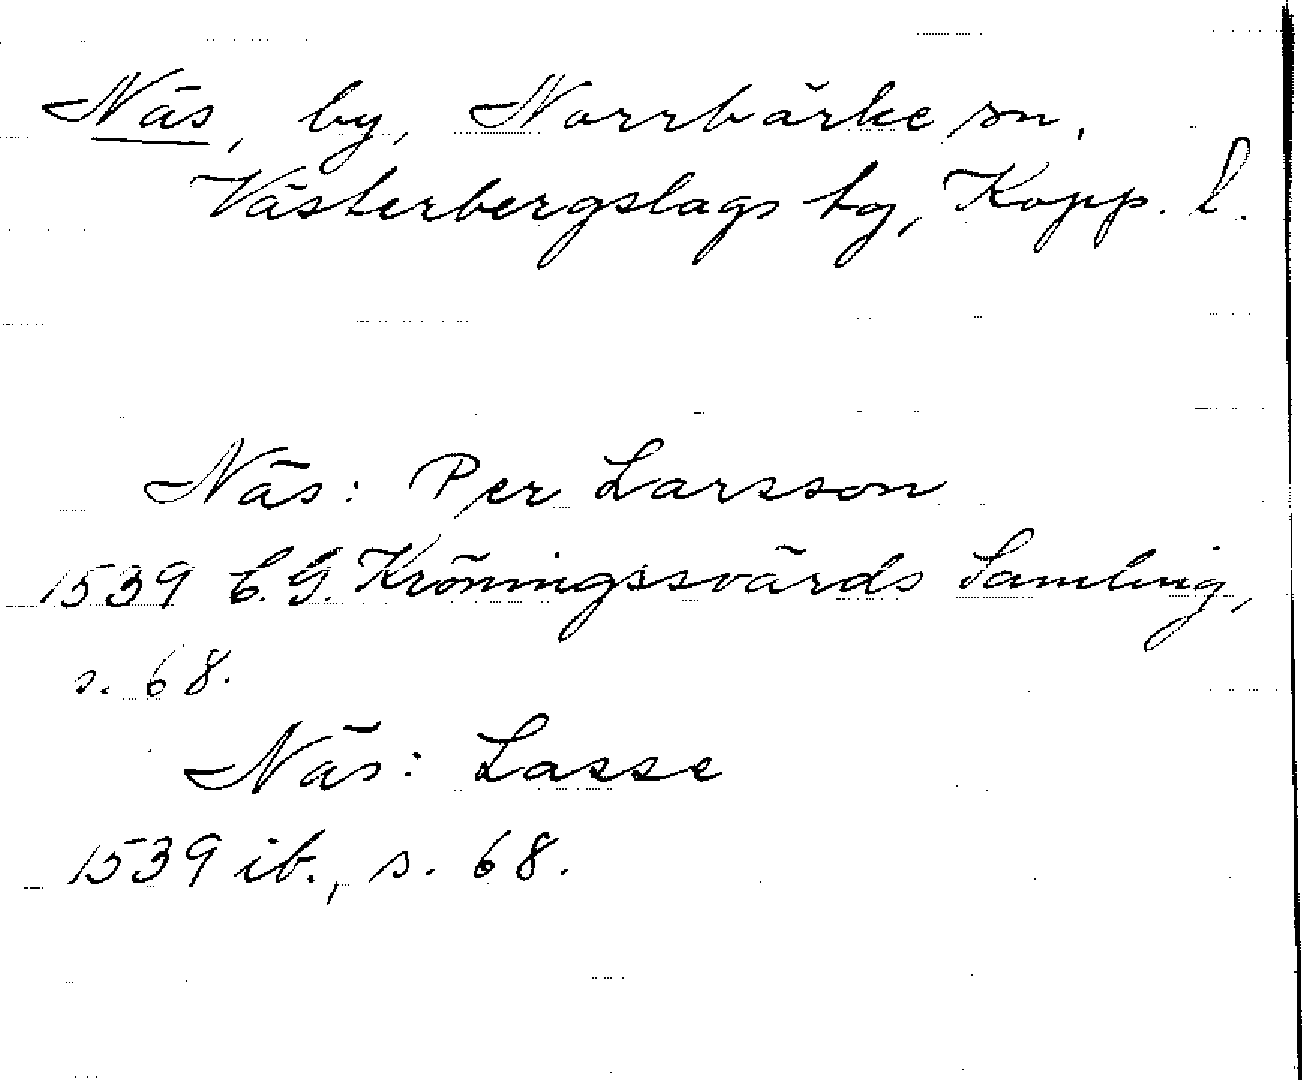 Näs, by, Norrbärke sn,
Västerbergslags tg, Kopp. l.
Näs: Per Larsson
1539 C. G. Kröningssvärds Samling,
s. 68.
Näs: Lasse
1539 ib., s. 68.